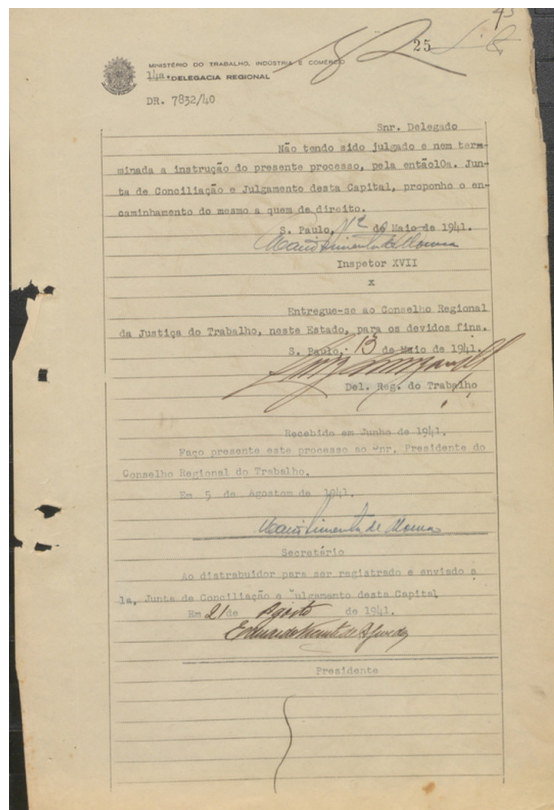 45
25
MINISTÉRIO DO TRABALHO, INDÚSTRIA E COMÉRCIO
14a. DELEGACIA REGIONAL
DR. 7832/40
Snr. Delegado
Não tendo sido julgado e nem ter-
minada a instrução do presente processo, pela então10a. Jun-
ta de Conciliação e Julgamento desta Capital, proponho o en-
caminhamento do mesmo a quem de direito.
S. Paulo, 12 de Maio de 1941.
Mario Pimenta de Moura
Inspetor XVII
x
Entregue-se ao Conselho Regional
da Justiça do Trabalho, neste Estado, para os devidos fins.
S. Paulo, 13 de Maio de 1941.
Del. Reg. do Trabalho
Recebido em Junho de 1941.
Faço presente este processo ao Snr. Presidente do
Conselho Regional do Trabalho.
Em 5 de Agostom de 1941.
Mario Pimenta de Moura
Secretário
Ao distrabuidor para ser registrado e enviado a
1a. Junta de Conciliação e Julgamento desta Capital
Em 21 de Agosto de 1941.
Eduardo Vicente de Azevedo
Presidente